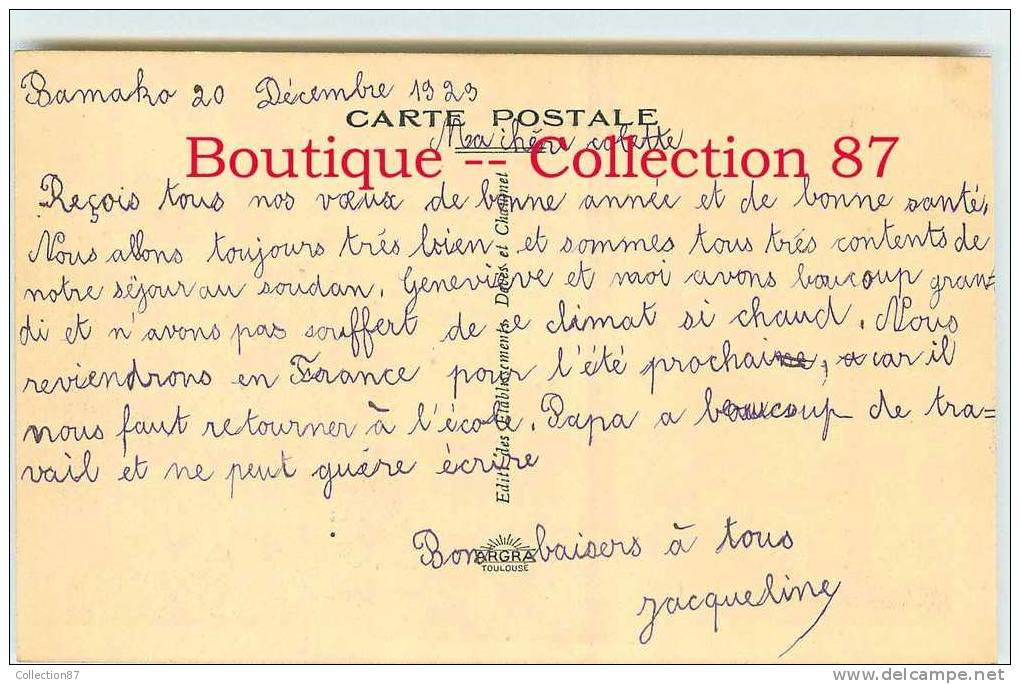 Bamako 20 Décembre 1929
CARTE POSTALE
Ma chère colette
Boutique -- Collection 87
Reçois tous nos vœux de bonne année et de bonne santé.
Nous allons toujours trés bien et sommes tous trés contents de
notre séjour au soudan. Geneviève et moi avons beaucoup gran=
di et n'avons pas souffert de ce climat si chaud. Nous
reviendrons en France pour l'été prochain, car il
nous faut retourner à l'école. Papa a beaucoup de tra=
vail et ne peut guére écrire
Bons baisers à tous
Jacqueline
Editt des Etablissements Daves et Chaumet
ARGRA
TOULOUSE
Collection87
delcampe.net